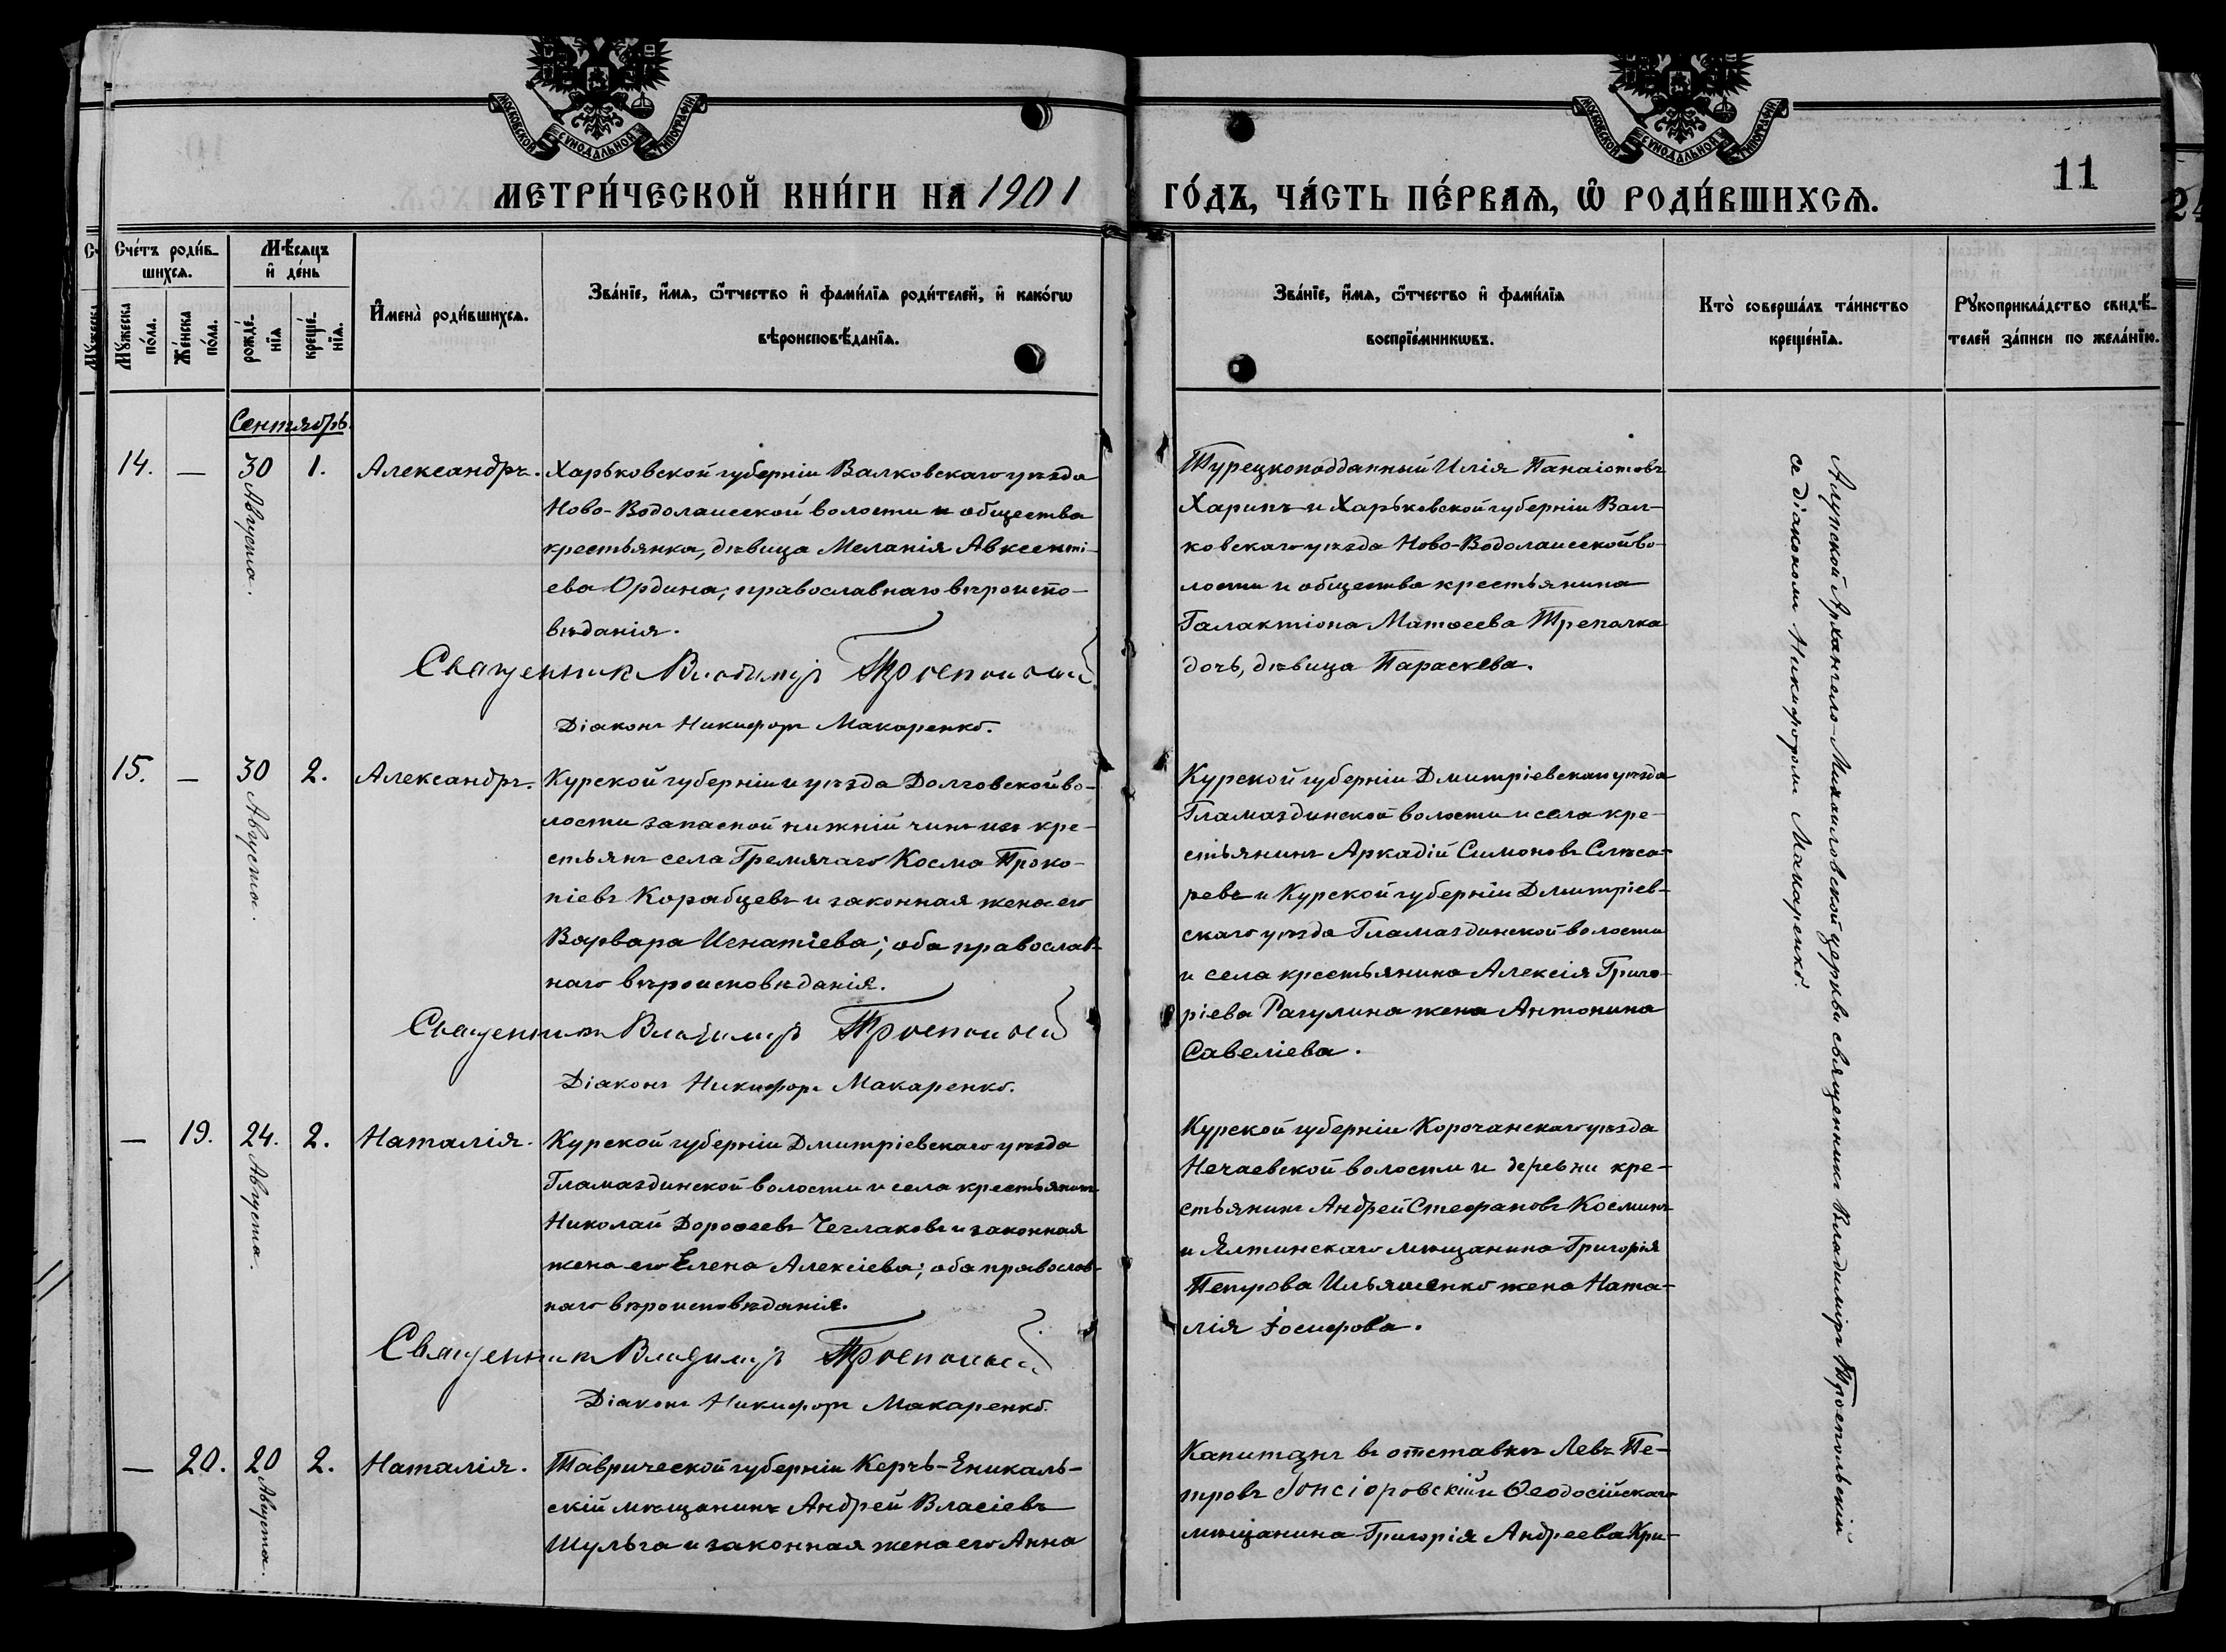 МОСКОВСКОЙ СѴНОДАЛЬНОЙ ТИПОГРАФІИ
МОСКОВСКОЙ СѴНОДАЛЬНОЙ ТИПОГРАФІИ
11
МЕТРИ́ЧЕСКОЙ КНИ́ГИ НА 1901 ГО́ДЪ, ЧА́СТЬ ПЕ́РВАѦ, Ѡ҆ РОДИ́ВШИХСѦ.
Сче́тъ роди́в-
шихсѧ.
Мꙋ́жеска по́ла.
Же́нска по́ла.
Мѣ́сѧцъ
и҆ де́нь
рожде́-
нїѧ
креще́-
нїѧ.
И҆мена̀ роди́вшихсѧ.
Зва́нїе, и҆́мѧ, ѻ҆́тчество и҆ фами́лїѧ роди́телей, и҆ како́гѡ
вѣроисповѣ́данїѧ.
Зва́нїе, и҆́мѧ, ѻ҆́тчество и҆ фами́лїѧ
воспрїе́мникѡвъ.
Кто̀ соверша́лъ та́инство
креще́нїѧ.
Рꙋкоприкла́дство свидѣ́-
телей за́писи по жела́нїю.
Сентябрь.
14. — 30 Августа. 1. Александръ.
Харьковской губерніи Валковскаго уѣзда
Ново-Водолаисской волости и общества
крестьянка, дѣвица Меланія Авксенті-
ева Ордина; православнаго вѣроиспо-
вѣданія.
Священникъ Владимиръ Троепольскій
Діаконъ Никифоръ Макаренко.
Турецкоподданный Илія Панаіотовъ
Харипъ и Харьковской губерніи Вал-
ковскаго уѣзда Ново-Водолаисской во-
лости и общества крестьянина
Галактіона Матѳеева Трепалка
дочь, дѣвица Параскева.
15. — 30 Августа. 2. Александръ.
Курской губерніи и уѣзда Долговской во-
лости запасной нижній чинъ изъ кре-
стьянъ села Гремячаго Косма Проко-
піевъ Корабцевъ и законная жена его
Варвара Игнатіева; оба православ-
наго вѣроисповѣданія.
Священникъ Владимиръ Троепольскій
Діаконъ Никифоръ Макаренко.
Курской губерніи Дмитріевскаго уѣзда
Гламаздинской волости и села кре-
стьянинъ Аркадій Симоновъ Слѣса-
ревъ и Курской губерніи Дмитріев-
скаго уѣзда Гламаздинской волости
и села крестьянина Алексія Григо-
ріева Рагулина жена Антонина
Савеліева.
— 19. 24. Августа. 2. Наталія.
Курской губерніи Дмитріевскаго уѣзда
Гламаздинской волости и села крестьянинъ
Николай Дороѳеевъ Чеглаковъ и законная
жена его Елена Алексіева; оба православ-
наго вѣроисповѣданія.
Священникъ Владимиръ Троепольскій
Діаконъ Никифоръ Макаренко.
Курской губерніи Корочанскаго уѣзда
Нечаевской волости и деревни кре-
стьянинъ Андрей Стефановъ Косминъ
и Ялтинскаго мѣщанина Григорія
Петрова Ильяшенко жена Ната-
лія Іосифова.
— 20. 20 Августа. 2. Наталія.
Таврической губерніи Керчь-Еникаль-
скій мѣщанинъ Андрей Власіевъ
Шульга и законная жена его Анна
Капитанъ въ отставкѣ Левъ Пе-
тровъ Гонсіоровскій и Ѳеодосійскаго
мѣщанина Григорія Андреева Кри-
Алупкской Архангело-Михаиловской церкви священникъ Владиміръ Троепольскій
съ діакономъ Никифоромъ Макаренко.